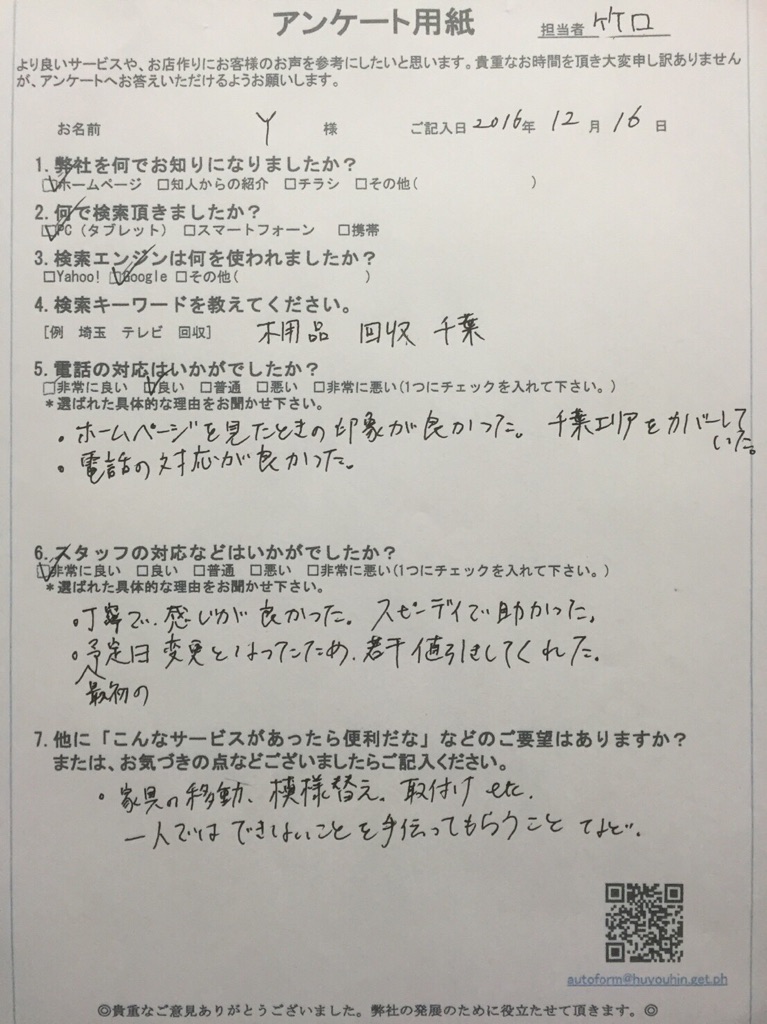 アンケート用紙 担当者 竹口
より良いサービスや、お店作りにお客様のお声を参考にしたいと思います。貴重なお時間を頂き大変申し訳ありません
が、アンケートへお答えいただけるようお願いします。
お名前 Y 様 ご記入日 2016年 12月 16日
1. 弊社を何でお知りになりましたか？
☑ホームページ □知人からの紹介 □チラシ □その他( )
2. 何で検索頂きましたか？
☑PC（タブレット） □スマートフォーン □携帯
3. 検索エンジンは何を使われましたか？
□Yahoo! ☑Google □その他( )
4. 検索キーワードを教えてください。
[例 埼玉 テレビ 回収] 不用品 回収 千葉
5. 電話の対応はいかがでしたか？
□非常に良い ☑良い □普通 □悪い □非常に悪い(1つにチェックを入れて下さい。)
＊選ばれた具体的な理由をお聞かせ下さい。
・ホームページを見たときの印象が良かった。千葉エリアをカバーして
いた。
・電話の対応が良かった。
6. スタッフの対応などはいかがでしたか？
☑非常に良い □良い □普通 □悪い □非常に悪い(1つにチェックを入れて下さい。)
＊選ばれた具体的な理由をお聞かせ下さい。
・丁寧で、感じが良かった。スピーディで助かった。
・予定日変更となってたため、若干値引きしてくれた。
最初の
7. 他に「こんなサービスがあったら便利だな」などのご要望はありますか？
または、お気づきの点などございましたらご記入ください。
・家具の移動、模様替え、取付け etc.
一人ではできないことを手伝ってもらうこと など。
autoform@huyouhin.get.ph
◎貴重なご意見ありがとうございました。弊社の発展のために役立たせて頂きます。◎